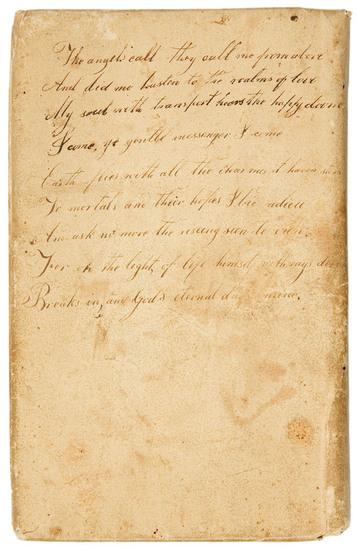 The angels call they call me from above
And bid me hasten to the realms of love
My soul with transport hears the happy doom
I come, ye gentle messenger I come
Earth flies with all the charms it has in
To mortals and their hopes I bid adieu
And ask no more the riseing sun to view
For oh the light, of life himself, with rays
Breaks in, and God's eternal day is mine.